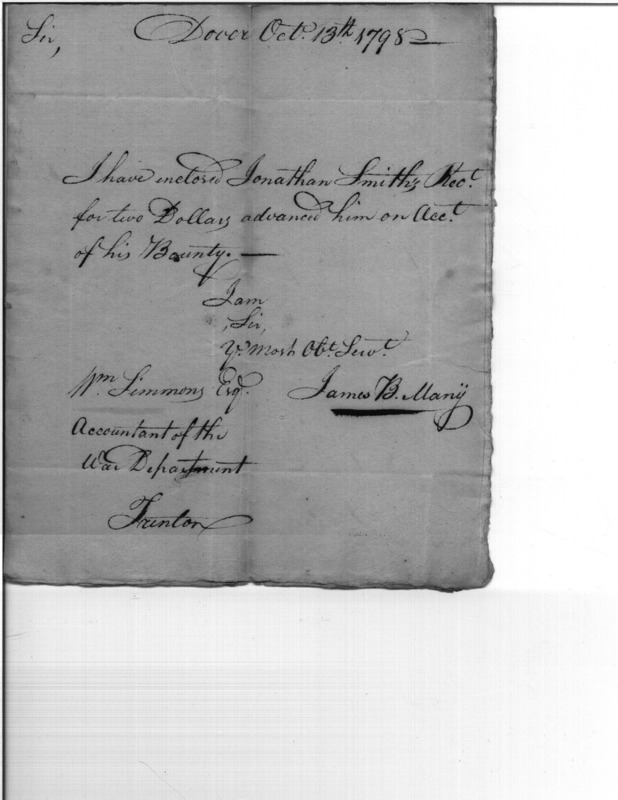 Sir, Dover Octr. 13th. 1798
I have inclosed Jonathan Smith's Rect.
for two Dollars advanced him on Acct.
of his Bounty. —
I am
Sir,
Yr. Most Obt. Servt.
Wm. Simmons Esqr. James B. Many
Accountant of the
War Department
Trenton